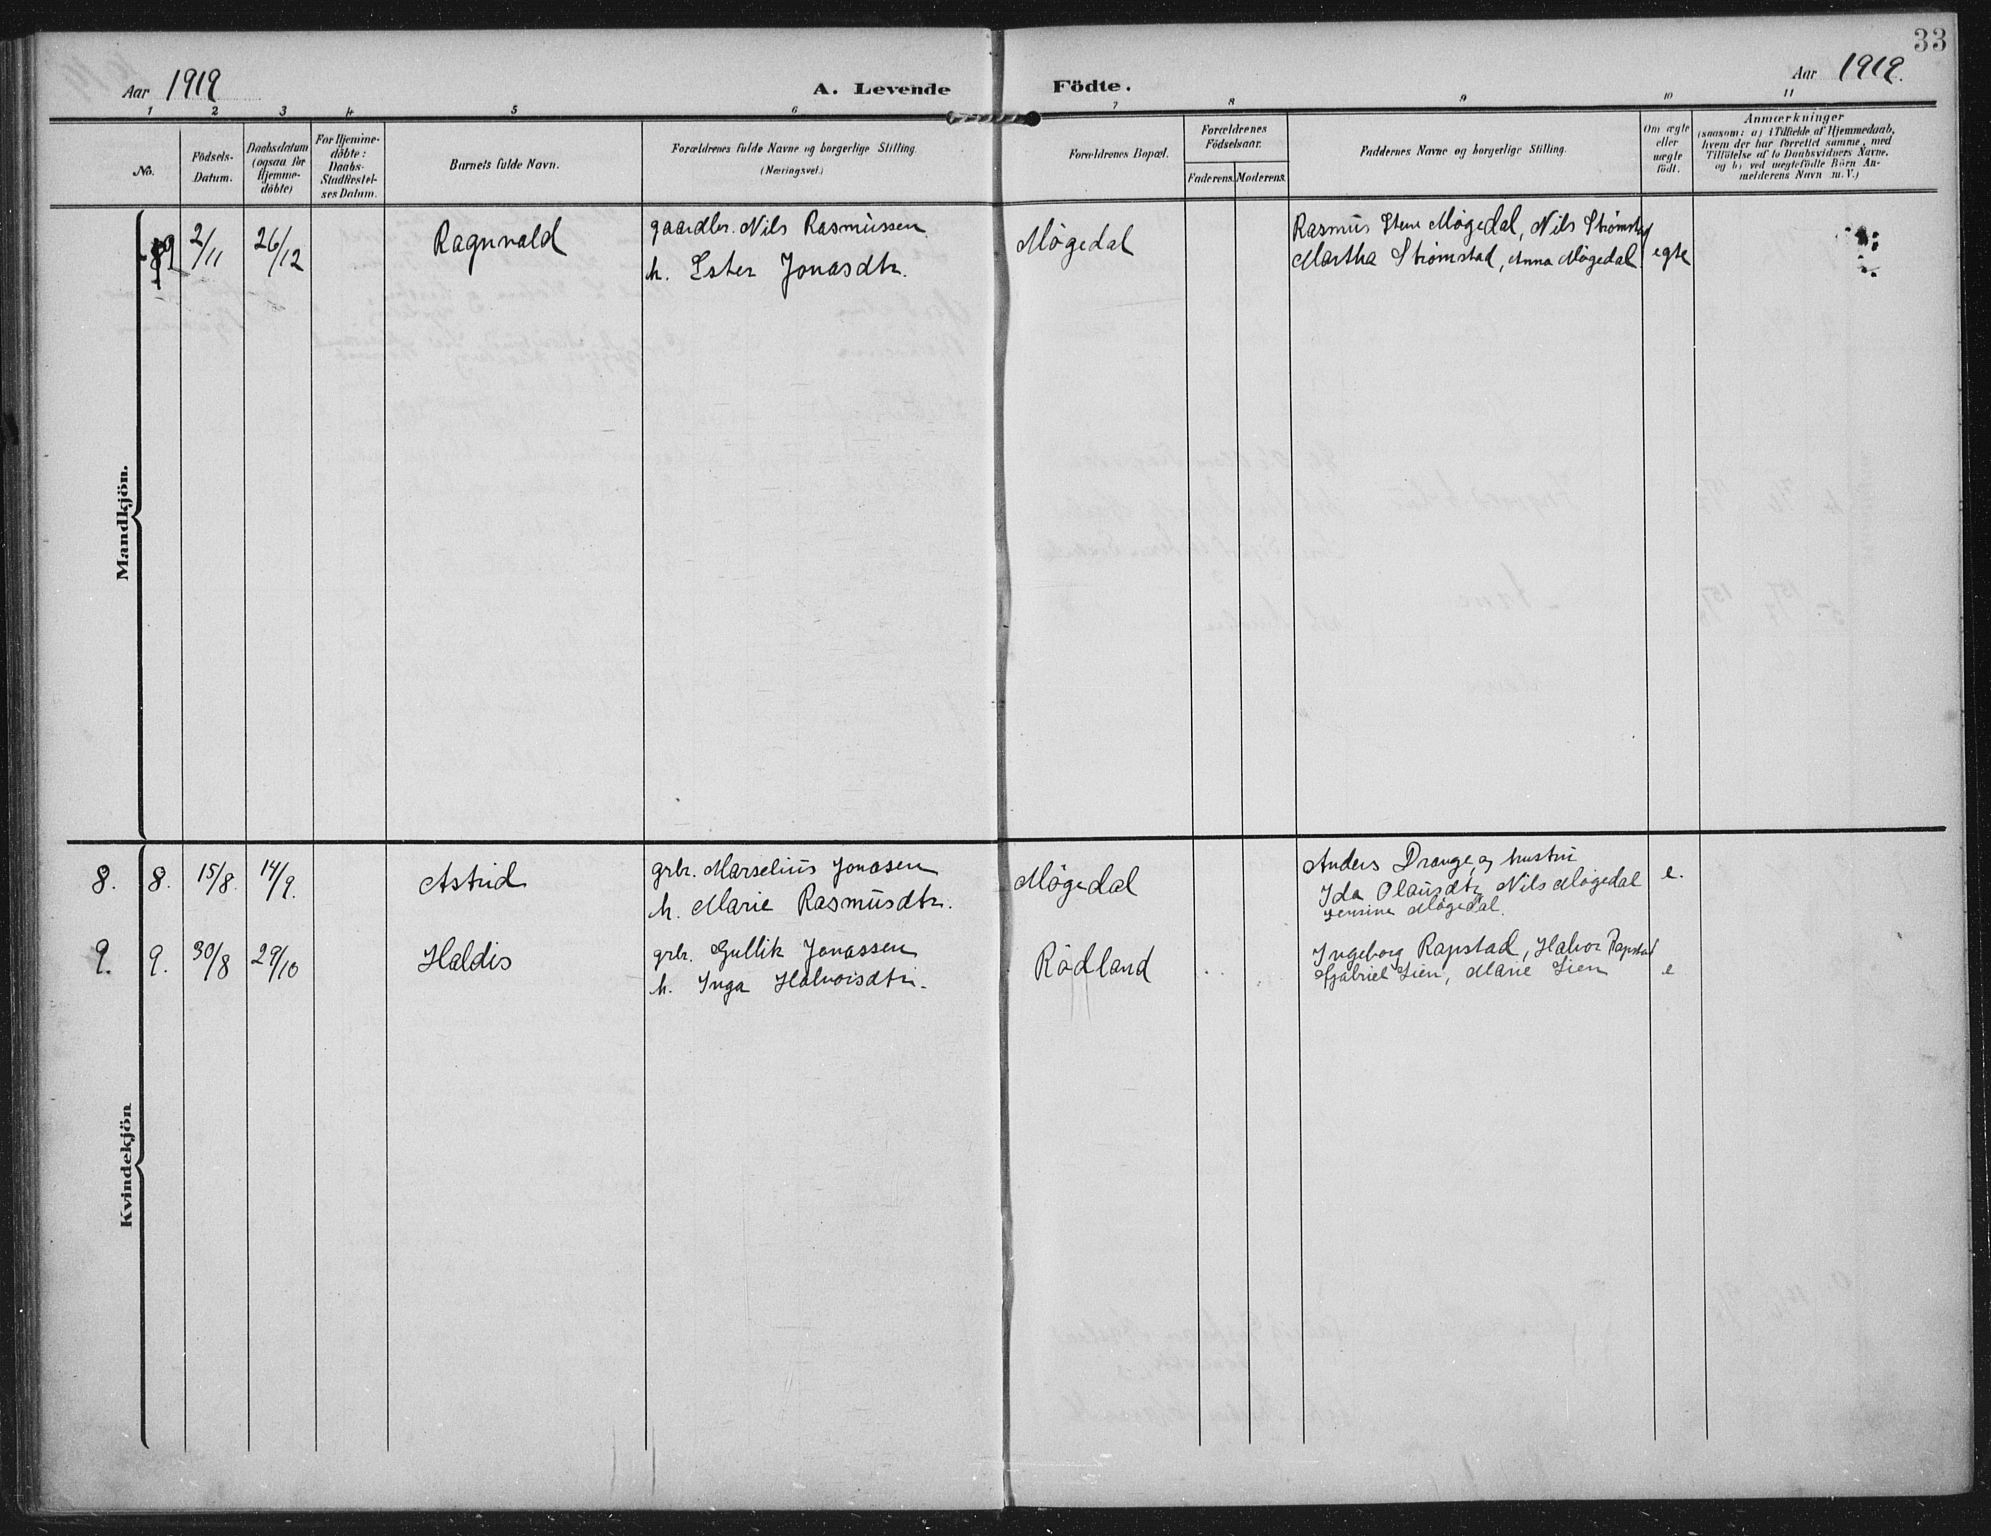 33
Aar 1919
A. Levende Födte.
Aar 1919.
1 2 3 4 5 6 7 8 9 10 11
No.
Födsels-
Datum.
Daabsdatum
(ogsaa for
Hjemme-
döbte)
For Hjemme-
döbte:
Daabs-
Stadfæstel-
ses Datum.
Barnets fulde Navn.
Forældrenes fulde Navne og borgerlige Stilling.
(Næringsvei.)
Forældrenes Bopæl.
Forældrenes
Födselsaar.
Faderens. Moderens.
Faddernes Navne og borgerlige Stilling.
Om ægte
eller
uægte
födt.
Anmærkninger
(saasom: a) i Tilfælde af Hjemmedaab,
hvem der har forrettet samme, med
Tilföielse af to Daabsvidners Navne.
og b) ved uægtefödte Börn An-
melderens Navn m. V.)
Mandkjön.
2/11 26/12 Ragnvald
gaardbr. Nils Rasmussen
h. Ester Jonasdtr.
Møgedal
Rasmus Møgedal, Nils Strømstad
Martha Strømstad, Anna Møgedal
egte
Kvindekjön
8. 8. 15/8. 14/9. Astrid
grbr. Marselius Jonasen
h. Marie Rasmusdtr.
Møgedal
Anders Drange og hustru
Ida Olausdtr, Nils Møgedal
Jensine Møgedal.
e.
9. 9. 30/8 29/10 Haldis
grbr. Gullik Jonassen
h. Inga Halvorsdtr.
Rødland
Ingeborg Rapstad, Halvor Rapstad
Gabriel Lien, Marie Lien
e